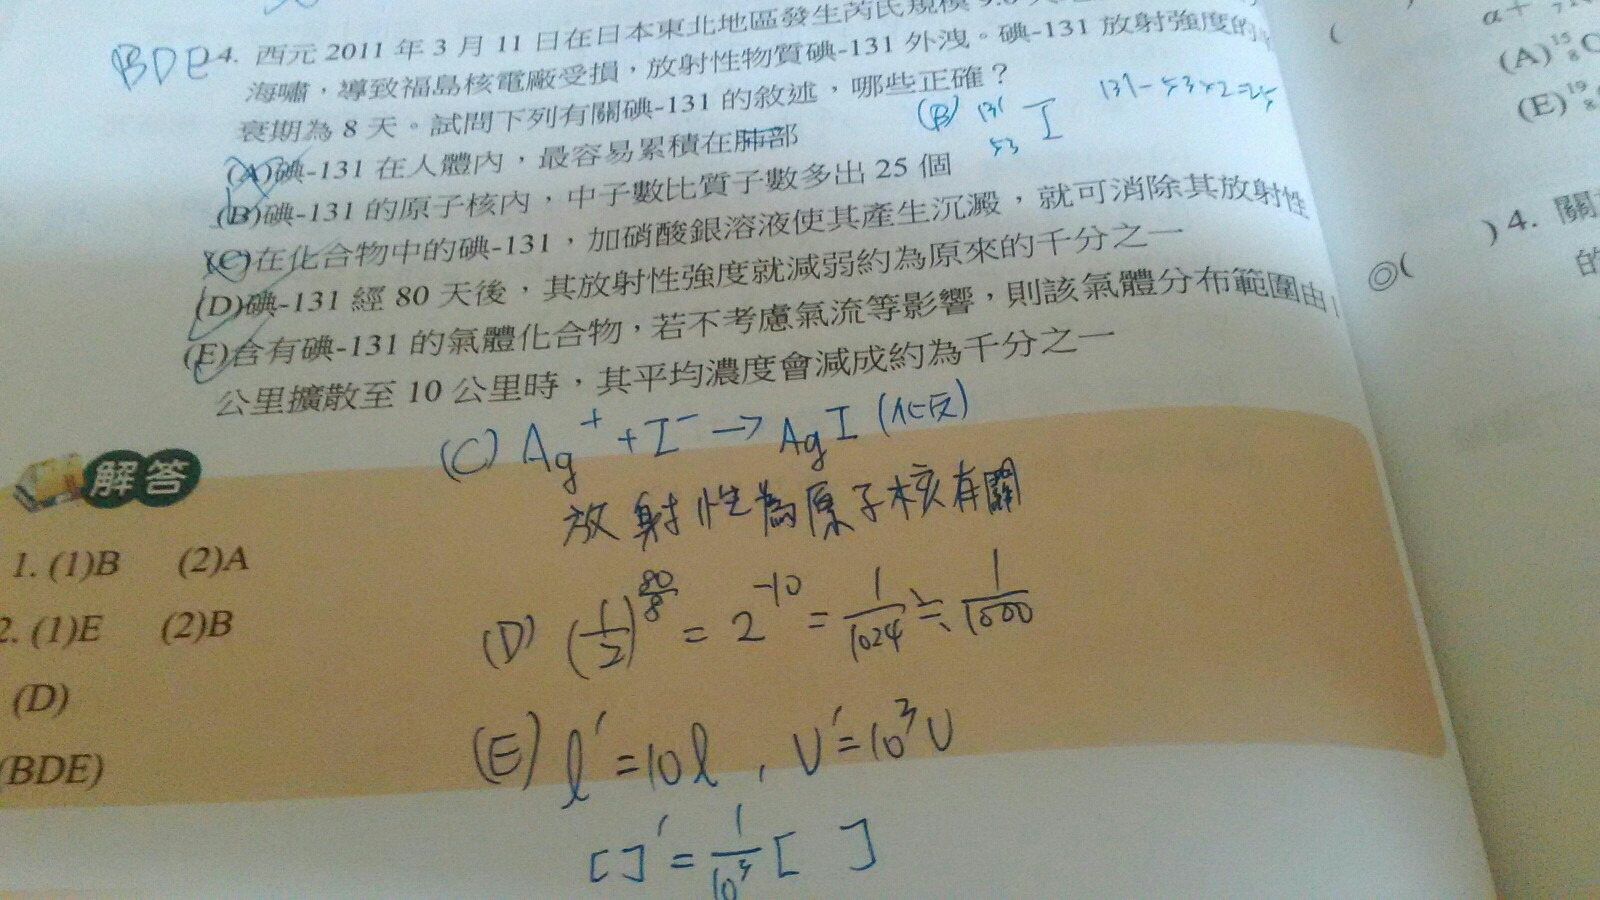 BDE 4. 西元 2011 年 3 月 11 日在日本東北地區發生芮氏規模 9.0
海嘯，導致福島核電廠受損，放射性物質碘-131 外洩。碘-131 放射強度的
衰期為 8 天。試問下列有關碘-131 的敘述，哪些正確？
(B) 131 53 I 131-53×2=25
(A)碘-131 在人體內，最容易累積在肺部
(B)碘-131 的原子核內，中子數比質子數多出 25 個
(C)在化合物中的碘-131，加硝酸銀溶液使其產生沉澱，就可消除其放射性
(D)碘-131 經 80 天後，其放射性強度就減弱約為原來的千分之一
(E)含有碘-131 的氣體化合物，若不考慮氣流等影響，則該氣體分布範圍由 1
公里擴散至 10 公里時，其平均濃度會減成約為千分之一
(C) Ag⁺ + I⁻ → AgI (化反)
放射性為原子核有關
(D) (1/2)^(80/8) = 2^-10 = 1/1024 ≒ 1/1000
(E) l' = 10l , V' = 10³V
[ ]' = 1/10³ [ ]
解答
1. (1)B (2)A
2. (1)E (2)B
(D)
(BDE)
α+
(A) ¹⁵₈O
(E) ¹⁹₈
) 4. 關
◎(
的